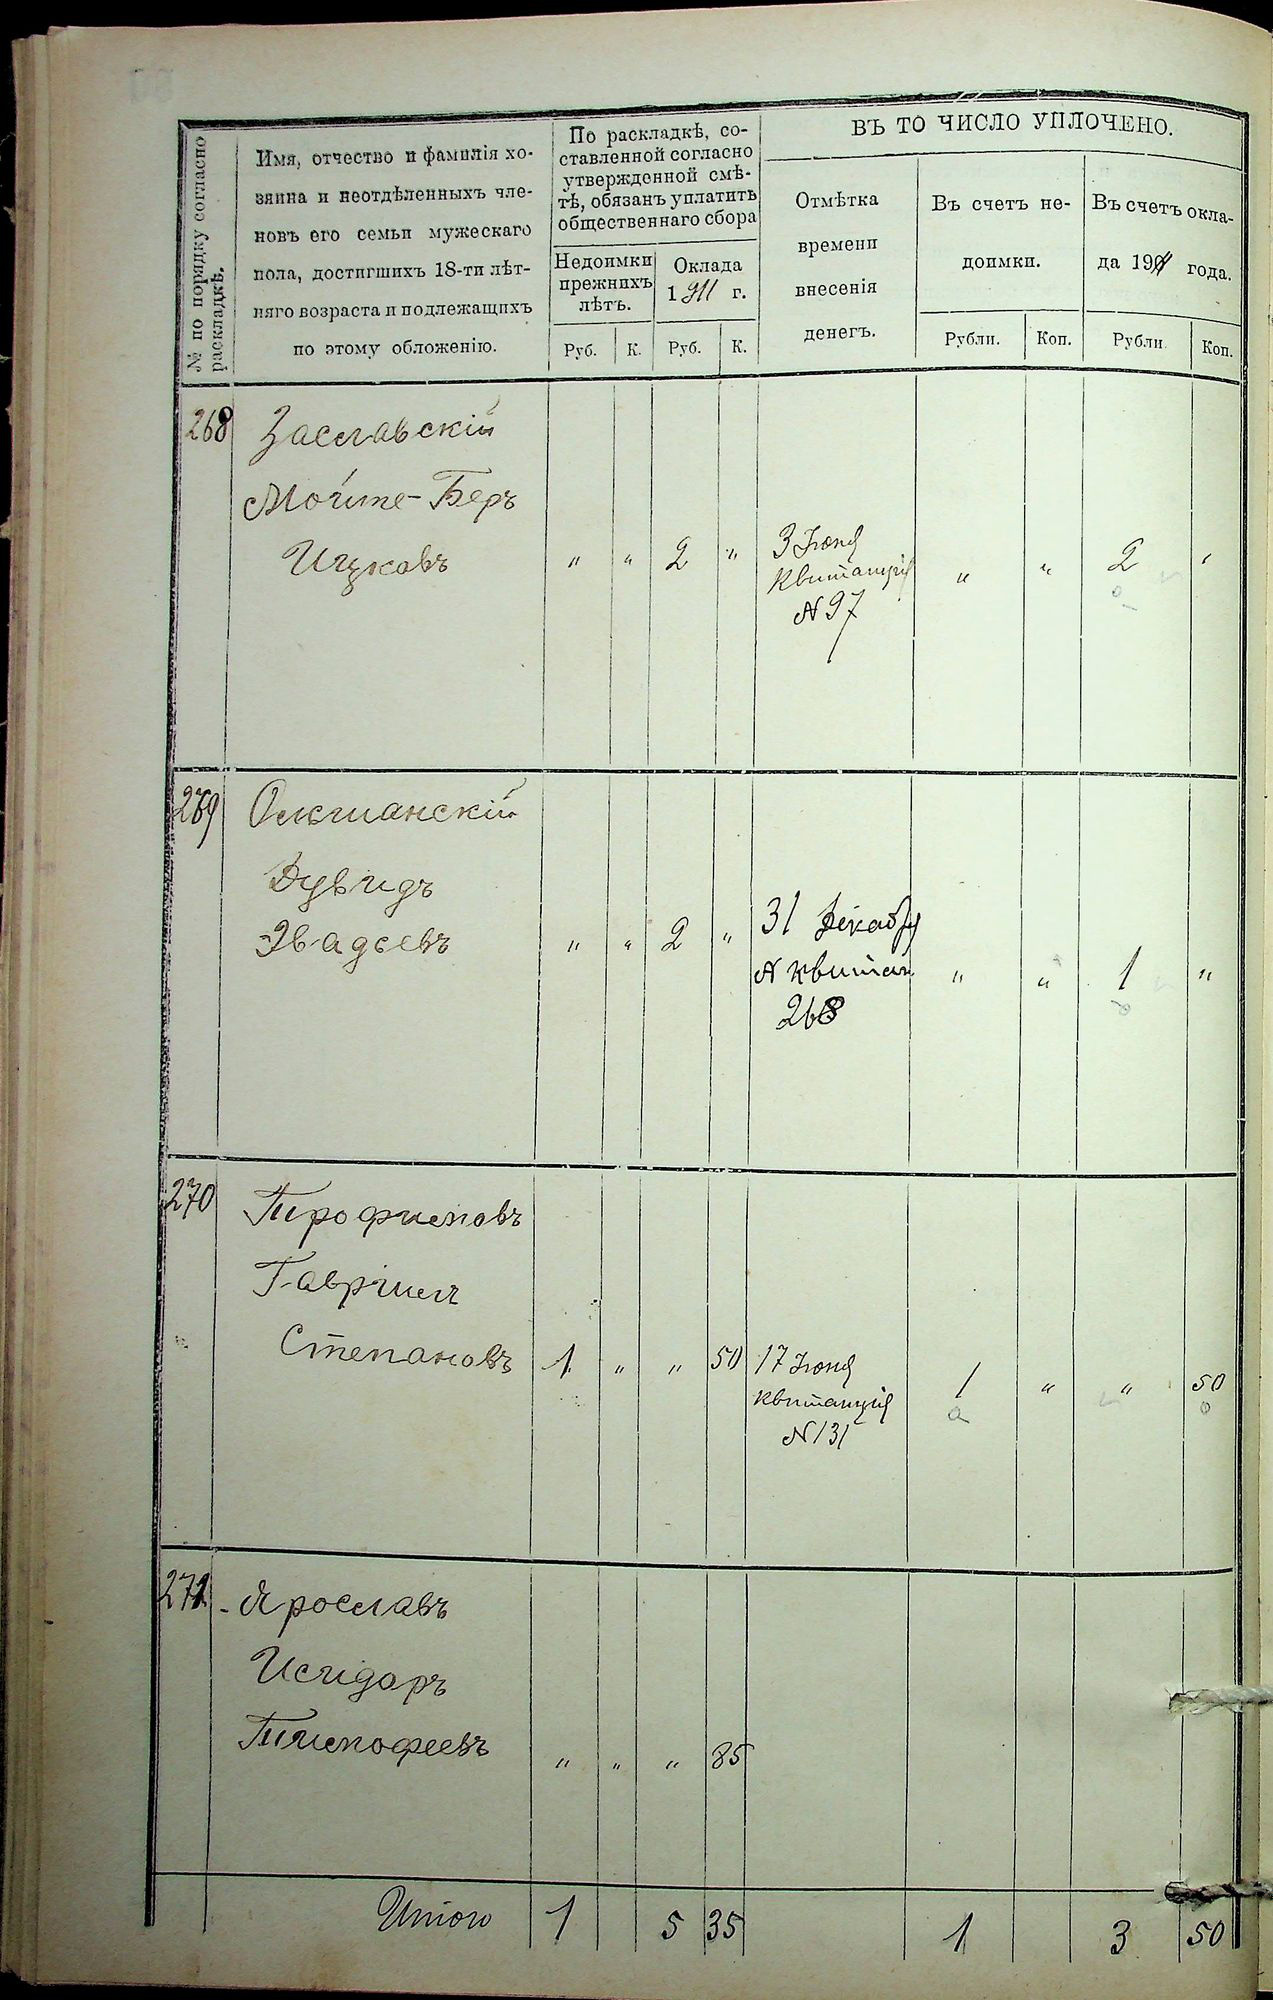 № по порядку согласно
раскладкѣ.
Имя, отчество и фамилія хо-
зяина и неотдѣленныхъ чле-
новъ его семьи мужескаго
пола, достигшихъ 18-ти лѣт-
няго возраста и подлежащихъ
по этому обложенію.
По раскладкѣ, со-
ставленной согласно
утвержденной смѣ-
тѣ, обязанъ уплатить
общественнаго сбора
Недоимки
прежнихъ
лѣтъ.
Оклада
1911 г.
Руб. К. Руб. К.
ВЪ ТО ЧИСЛО УПЛОЧЕНО.
Отмѣтка
времени
внесенія
денегъ.
Въ счетъ не-
доимки.
Рубли. Коп.
Въ счетъ окла-
да 1911 года.
Рубли Коп.
268 Заславскій
Мойше-Беръ
Ицковъ " " 2 " 3 Іюня " " 2 "
Квитанція
№ 97
269
Дувидъ
" " 2 " 31 Декабря " " 1 "
№ квитан
268
270 Трофимовъ
Гавріилъ
Степановъ 1 " " 50 17 Іюня 1 " " 50
квитанція
№ 131
271 Ярославъ
Исидоръ
Тимофеевъ " " " 85
Итого 1 5 35 1 3 50